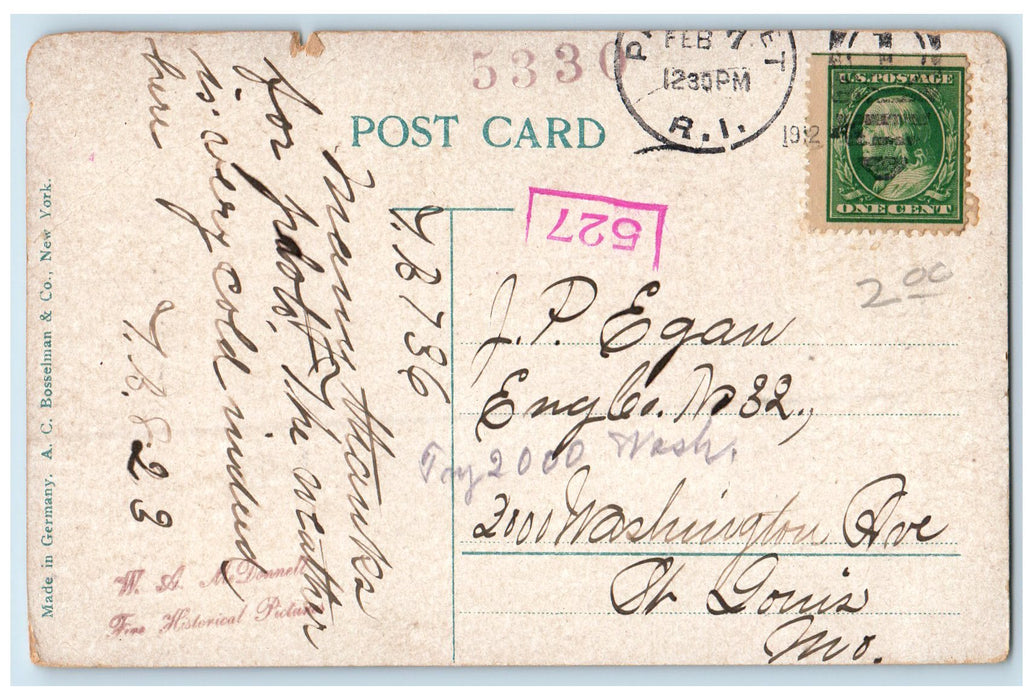 5330
FEB 7
1230PM
R.I.
1912
U.S. POSTAGE
ONE CENT
POST CARD
527
2 00
Many thanks
for postal, the weather
is very cold indeed
here
Y.B. 736
Y.B. 823
J. P. Egan
Eng Co. No 32,
Try 2000 Wash.
2000 Washington Ave
St Louis
Mo.
W. A. McDonnell
Fire Historical Picture
Made in Germany. A. C. Bosselman & Co., New York.